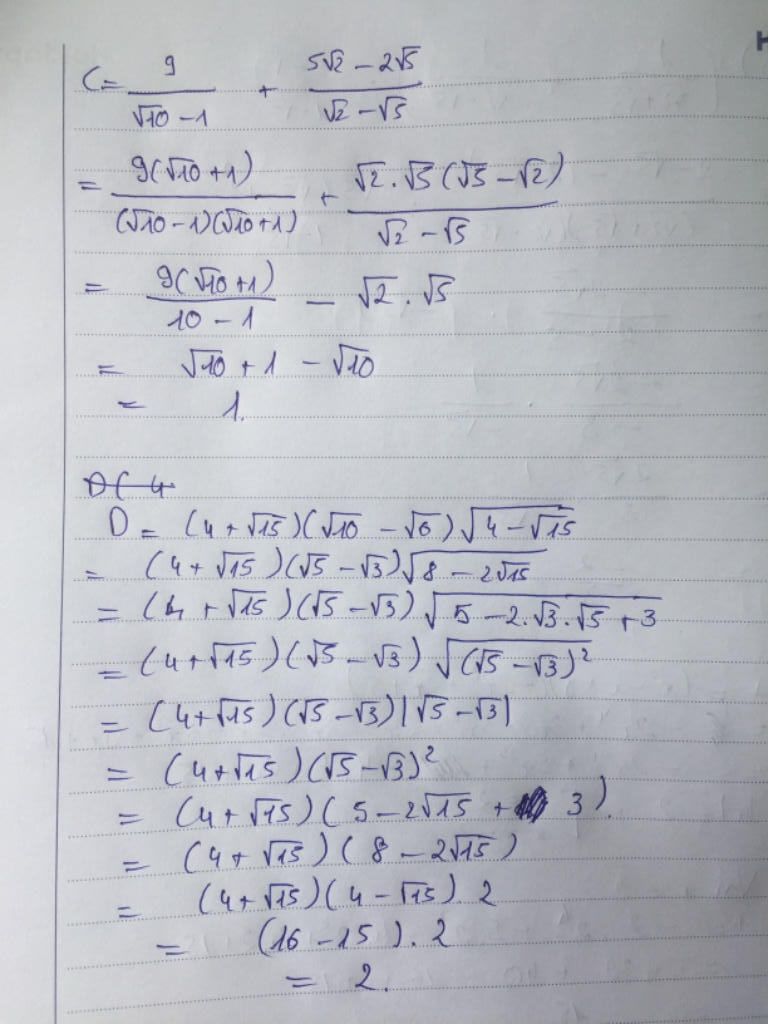 C = 9/(√10 − 1) + (5√2 − 2√5)/(√2 − √5)
= 9(√10 + 1)/((√10 − 1)(√10 + 1)) + √2 . √5 (√5 − √2)/(√2 − √5)
= 9(√10 + 1)/(10 − 1) − √2 . √5
= √10 + 1 − √10
= 1.
D = (4 + √15)(√10 − √6)√(4 − √15)
= (4 + √15)(√5 − √3)√(8 − 2√15)
= (4 + √15)(√5 − √3)√(5 − 2.√3.√5 + 3)
= (4 + √15)(√5 − √3)√((√5 − √3)²)
= (4 + √15)(√5 − √3)|√5 − √3|
= (4 + √15)(√5 − √3)²
= (4 + √15)(5 − 2√15 + 3).
= (4 + √15)(8 − 2√15)
= (4 + √15)(4 − √15). 2
= (16 − 15). 2
= 2.